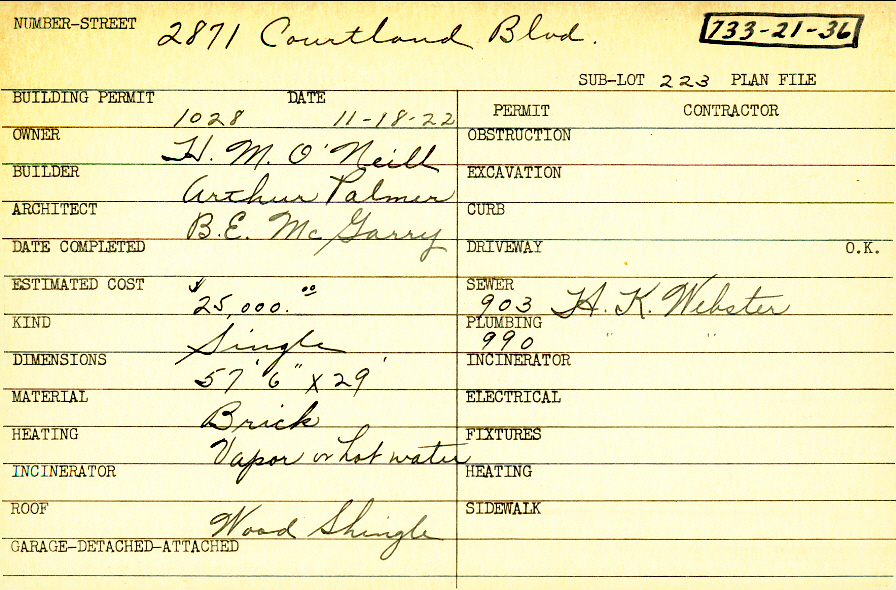 NUMBER-STREET 2871 Courtland Blvd. 733-21-36
SUB-LOT 223 PLAN FILE
BUILDING PERMIT 1028 DATE 11-18-22
PERMIT CONTRACTOR
OWNER H. M. O'Neill
OBSTRUCTION
BUILDER Arthur Palmer
EXCAVATION
ARCHITECT B.E. McGarry
CURB
DATE COMPLETED
DRIVEWAY O.K.
ESTIMATED COST $25,000.00
SEWER 903 H. K. Webster
KIND Single
PLUMBING 990 " "
DIMENSIONS 57' 6" X 29'
INCINERATOR
MATERIAL Brick
ELECTRICAL
HEATING Vapor or hot water
FIXTURES
INCINERATOR
HEATING
ROOF Wood Shingle
SIDEWALK
GARAGE-DETACHED-ATTACHED